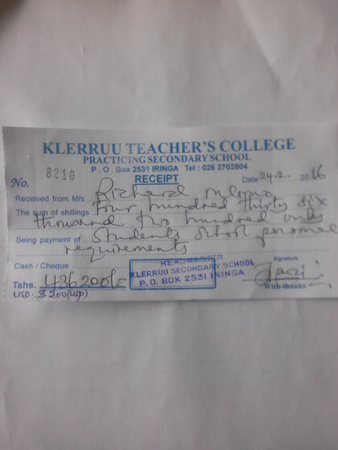 KLERRUU TEACHER'S COLLEGE
PRACTICING SECONDARY SCHOOL
P.O. Box 2531 IRINGA Tel: 026 2702804
No. 8210 RECEIPT Date 24.2. 2016
Received from M/s Richard
The sum of shillings four hundred thirty six
thousand two hundred only
Being payment of Students school personal
requirements
Cash / Cheque
HEADMASTER
KLERRUU SECONDARY SCHOOL
P.O. BOX 2531 IRINGA
Signature
Tshs. 436200/=
With thanks